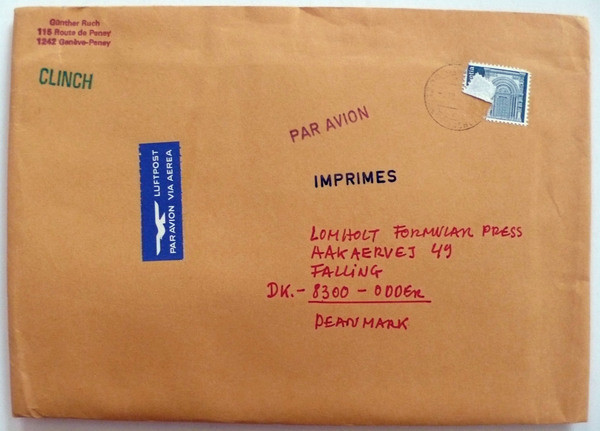 Günther Ruch
115 Route de Peney
1242 Genève-Peney
CLINCH
PAR AVION
IMPRIMES
LUFTPOST
PAR AVION VIA AEREA
LOMHOLT FORMULAR PRESS
AAKAERVEJ 49
FALLING
DK.- 8300 - ODDER
DEANMARK